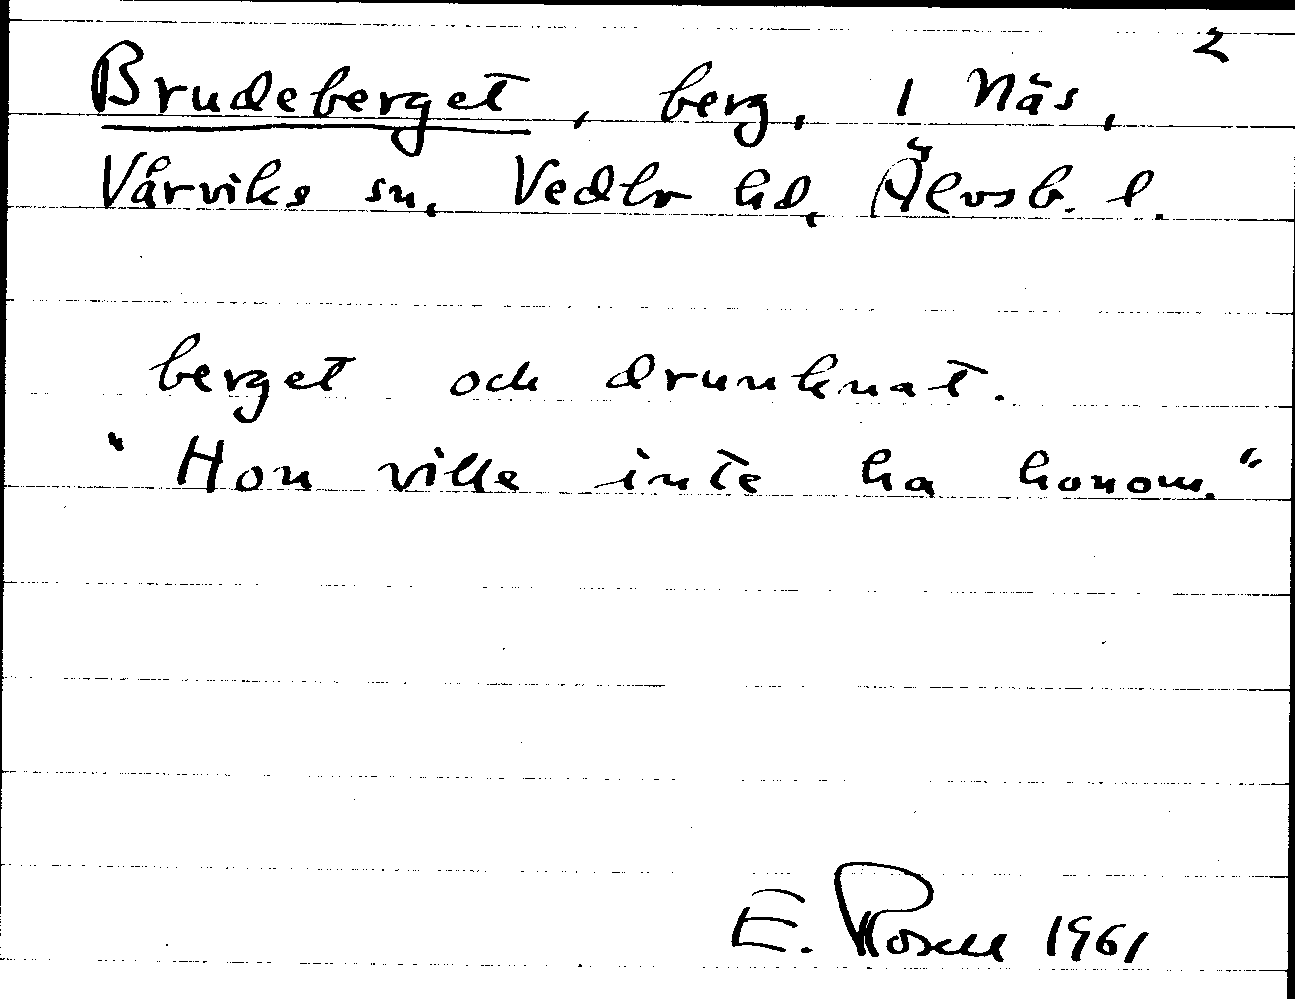 2
Brudeberget, berg, 1 Näs,
Vårviks sn, Vedbo hd, Älvsb. l.
berget och drunknat.
"Hon ville inte ha honom."
E. Rosell 1961